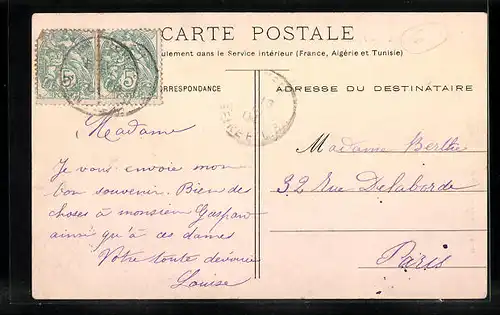 CARTE POSTALE
ulement dans le Service intérieur (France, Algérie et Tunisie)
RRESPONDANCE
ADRESSE DU DESTINATAIRE
5
5
Madame
Je vous envoie mon
bon souvenir. Bien des
choses à monsieur Gaspard
ainsi qu'à ces dames
Votre toute dévouée
Louise
Madame Berthe
32 Rue Delaborde
Paris